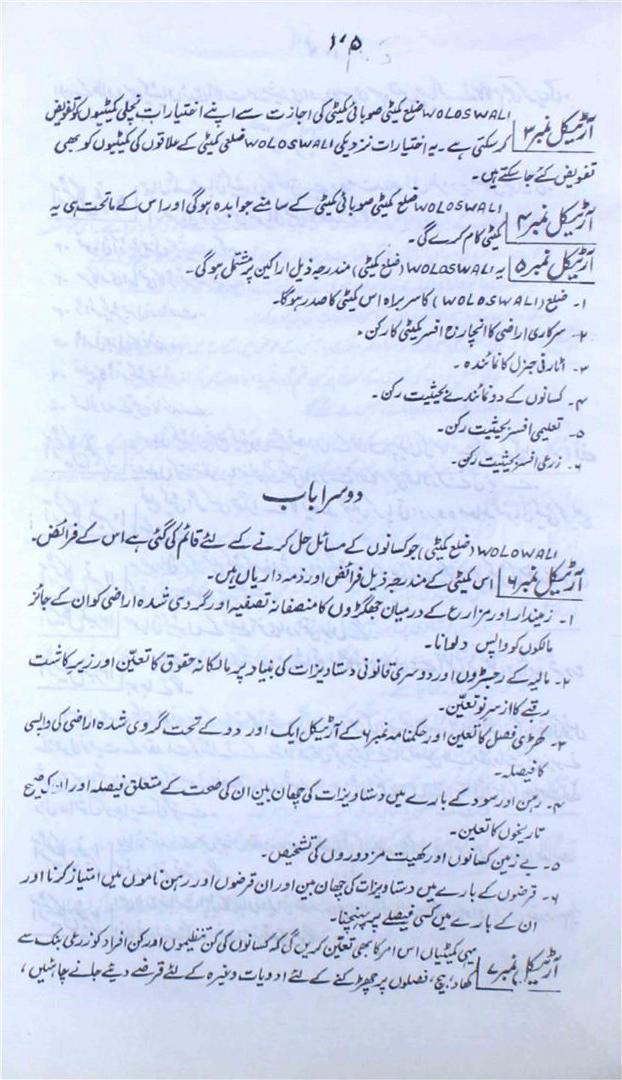 ۱۰۵
آرٹیکل نمبر ۳ WOLOSWALI ضلع کمیٹی صوبائی کمیٹی کی اجازت سے اپنے اختیارات نچلی کمیٹیوں کو تفویض
کر سکتی ہے۔ یہ اختیارات نزدیکی WOLOSWALI ضلعی کمیٹی کے علاقوں کی کمیٹیوں کو بھی
تفویض کئے جا سکتے ہیں۔
آرٹیکل نمبر ۴ WOLOSWALI ضلع کمیٹی صوبائی کمیٹی کے سامنے جوابدہ ہوگی اور اس کے ماتحت ہی یہ
کمیٹی کام کرے گی۔
آرٹیکل نمبر ۵ یہ WOLOSWALI (ضلع کمیٹی) مندرجہ ذیل اراکین پر مشتمل ہوگی۔
۱۔ ضلع (WOLOSWALI) کا سربراہ اس کمیٹی کا صدر ہوگا۔
۲۔ سرکاری اراضی کا انچارج افسر کمیٹی کا رکن۔
۳۔ اٹارنی جنرل کا نمائندہ۔
۴۔ کسانوں کے دو نمائندے بحیثیت رکن۔
۵۔ تعلیمی افسر بحیثیت رکن۔
۶۔ زرعی افسر بحیثیت رکن۔
دوسرا باب
WOLOWALI (ضلع کمیٹی) جو کسانوں کے مسائل حل کرنے کے لئے قائم کی گئی ہے اس کے فرائض۔
آرٹیکل نمبر ۶ اس کمیٹی کے مندرجہ ذیل فرائض اور ذمہ داریاں ہیں۔
۱۔ زمیندار اور مزارع کے درمیان جھگڑوں کا منصفانہ تصفیہ اور گروی شدہ اراضی کو ان کے جائز
مالکوں کو واپس دلوانا۔
۲۔ مالیہ کے رجسٹروں اور دوسری قانونی دستاویزات کی بنیاد پر مالکانہ حقوق کا تعین اور زیر کاشت
رقبے کا از سر نو تعین۔
۳۔ کھڑی فصل کا تعین اور حکمنامہ نمبر ۶ کے آرٹیکل ایک اور دو کے تحت گروی شدہ اراضی کی واپسی
کا فیصلہ۔
۴۔ رہن اور سود کے بارے میں دستاویزات کی چھان بین ان کی صحت کے متعلق فیصلہ اور
تاریخوں کا تعین۔
۵۔ بے زمین کسانوں اور کھیت مزدوروں کی تشخیص۔
۶۔ قرضوں کے بارے میں دستاویزات کی چھان بین اور ان قرضوں اور رہن ناموں میں امتیاز کرنا اور
ان کے بارے میں کسی فیصلے پر پہنچنا۔
آرٹیکل نمبر ۷ یہی کمیٹیاں اس امر کا بھی تعین کریں گی کہ کسانوں کی کن تنظیموں اور کن افراد کو زرعی بنک سے
کھاد، بیج، فصلوں پر چھڑکنے کے لئے ادویات وغیرہ کے لئے قرضے دیئے جانے چاہئیں،